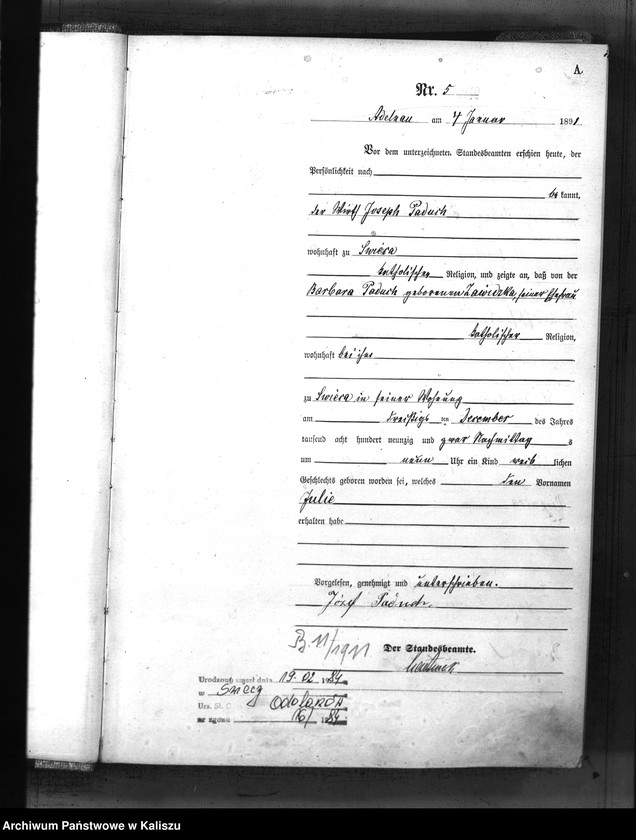 A.
Nr. 5
Adelnau am 4 Januar 1891
Vor dem unterzeichneten Standesbeamten erschien heute, der
Persönlichkeit nach
be kannt,
der Wirth Joseph Paduch
wohnhaft zu Swieca
katholischer Religion, und zeigte an, daß von der
Barbara Paduch geborenen Zawidzka, seiner Ehefrau
katholischer Religion,
wohnhaft bei ihm
zu Swieca in seiner Wohnung
am dreißigs ten December des Jahres
tausend acht hundert neunzig und zwar Nachmittag s
um neun Uhr ein Kind weib lichen
Geschlechts geboren worden sei, welches den Vornamen
Julie
erhalten habe
Vorgelesen, genehmigt und unterschrieben.
Józef Paduch
Der Standesbeamte.
B. 11/1911
Urodzona zmarł dnia 19.02 1984
w
Urz. St. C. Odolanów
nr zgonu 16/ 1984
Archiwum Państwowe w Kaliszu